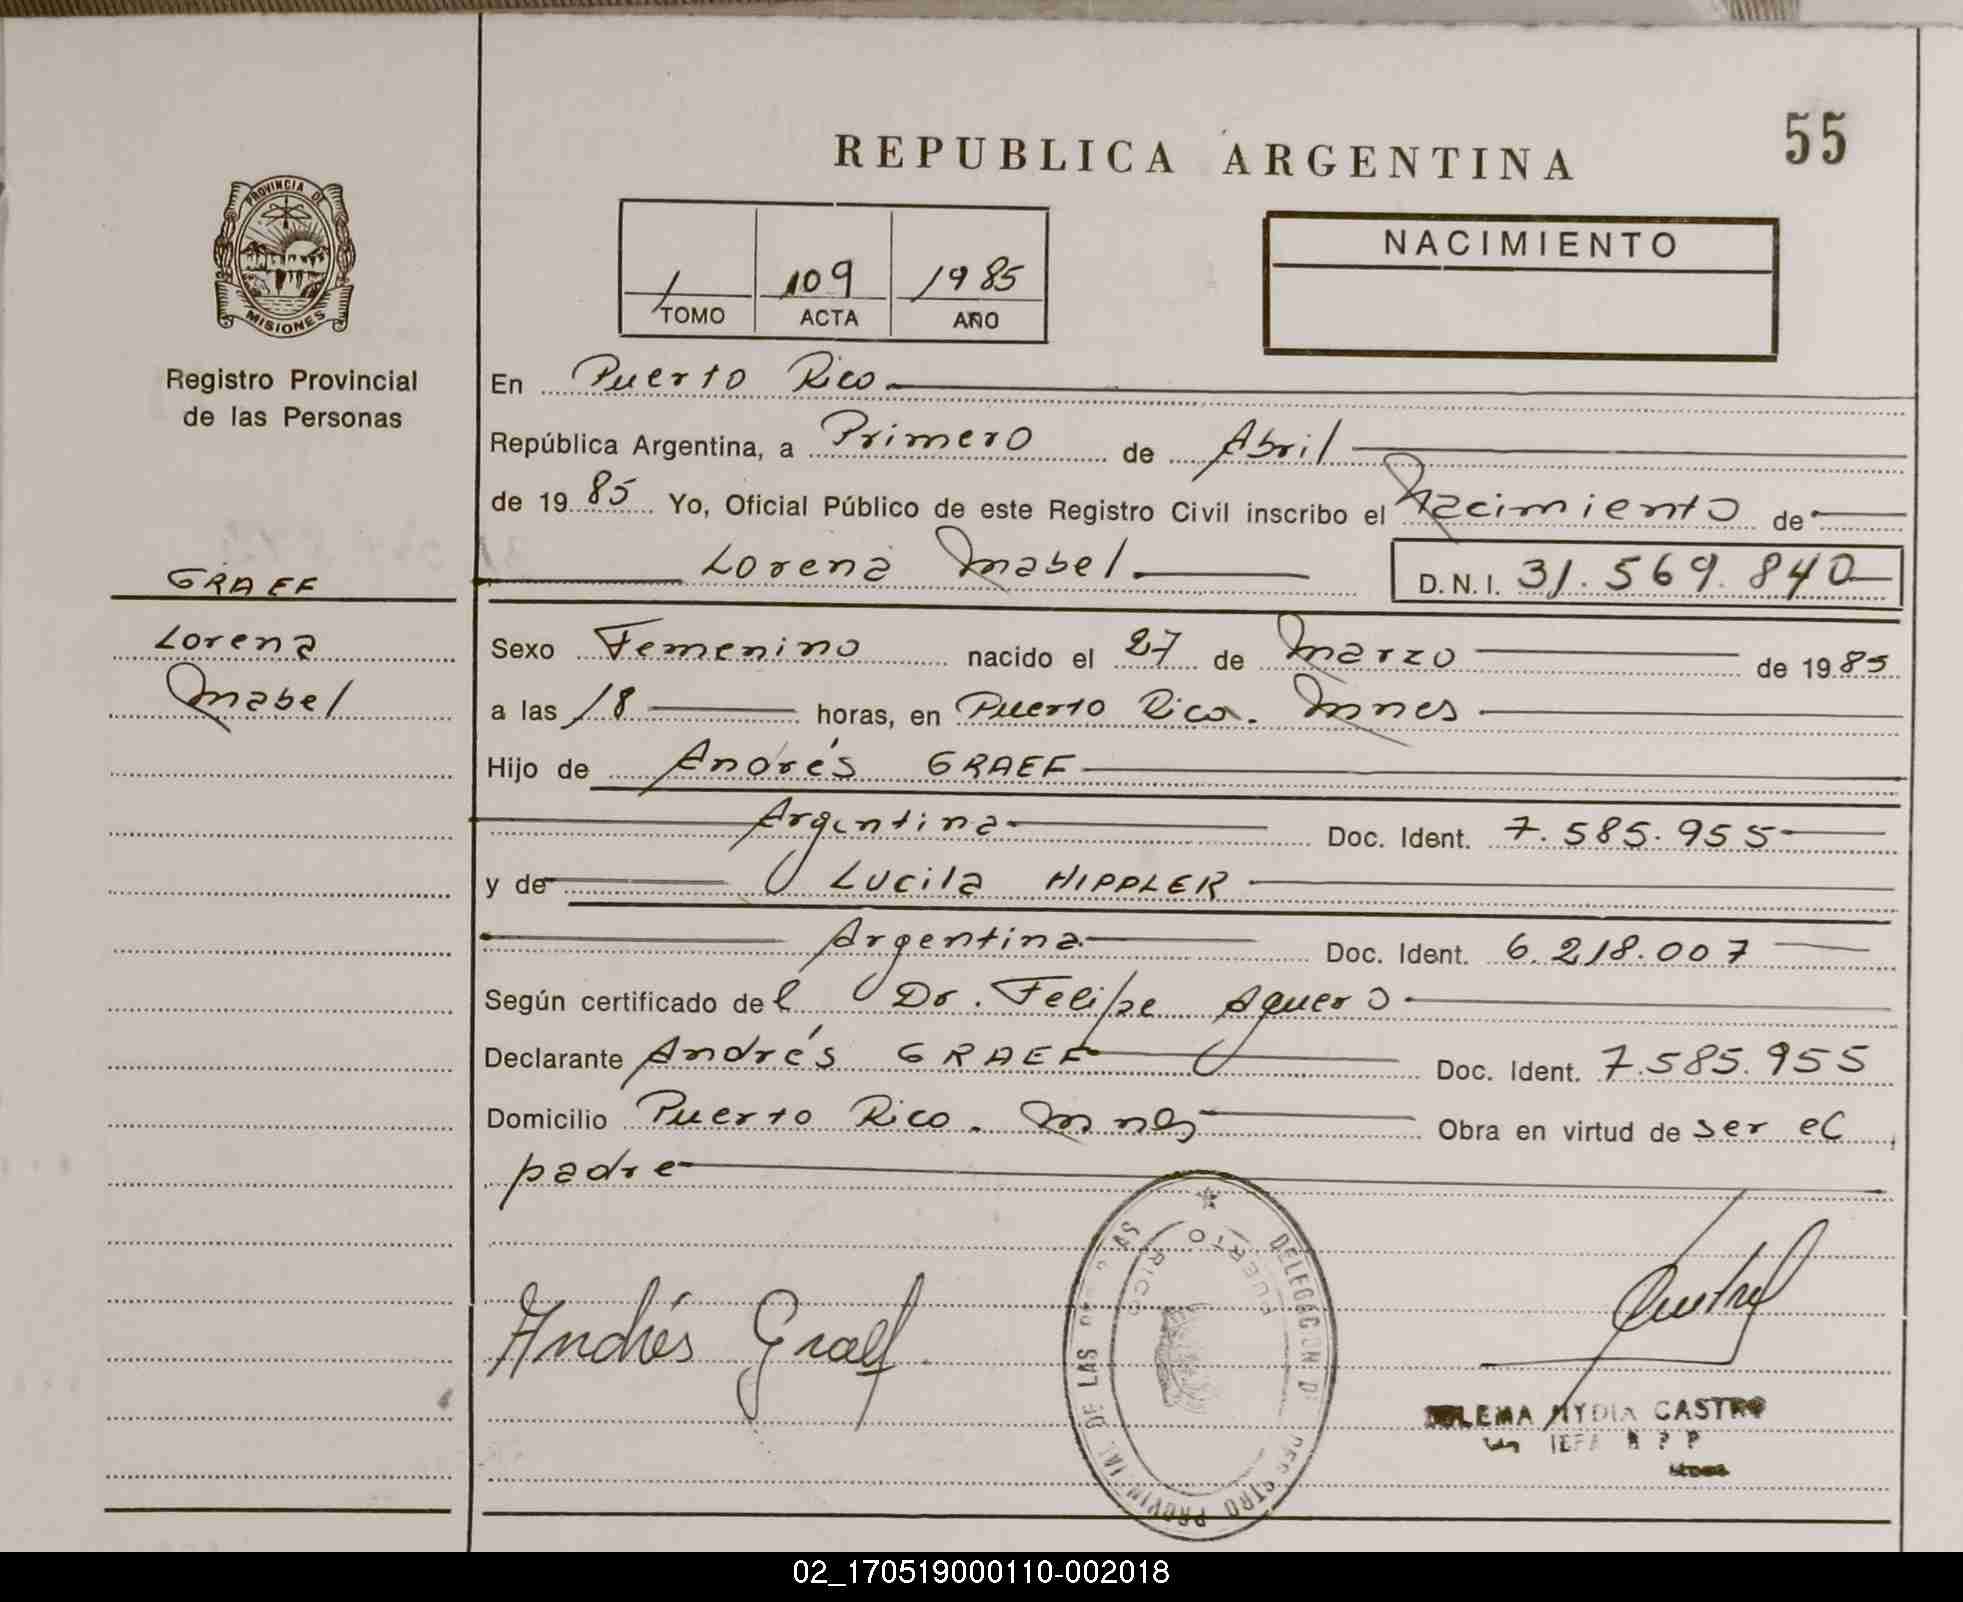 55
REPUBLICA ARGENTINA
PROVINCIA DE
MISIONES
Registro Provincial
de las Personas
1 109 1985
TOMO ACTA AÑO
NACIMIENTO
En Puerto Rico
República Argentina, a Primero de Abril
de 1985 Yo, Oficial Público de este Registro Civil inscribo el Nacimiento de
Lorena Mabel D.N.I. 31.569.840
GRAEF
Lorena
Mabel
Sexo Femenino nacido el 27 de Marzo de 1985
a las 18 horas, en Puerto Rico. Mnes
Hijo de Andrés GRAEF
Argentina Doc. Ident. 7.585.955
y de Lucila HIPPLER
Argentina Doc. Ident. 6.218.007
Según certificado del Dr. Felipe Aguero
Declarante Andrés GRAEF Doc. Ident. 7.585.955
Domicilio Puerto Rico. Mnes Obra en virtud de ser el
padre
Andrés Graef
DELEGACION
REGISTRO PROVINCIAL DE LAS
PUERTO RICO
CASTRO
02_170519000110-002018